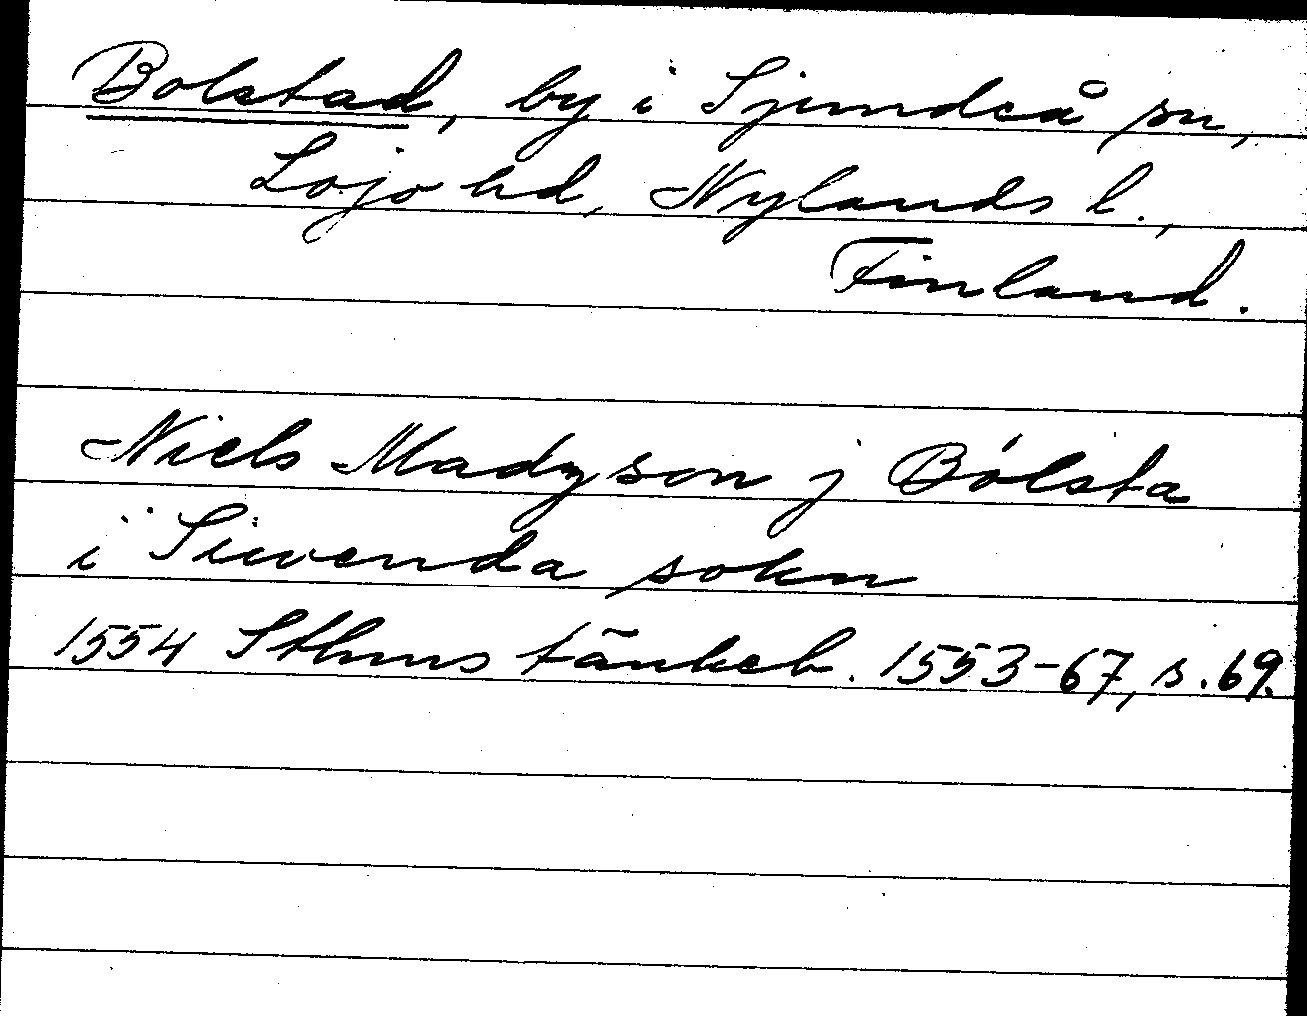 Bolstad, by i Sjundeå sn,
Lojo hd, Nylands l.,
Finland.
Niels Madzson j Bólsta
ï Siwenda sokn
1554 Sthms tänkeb. 1553-67, s. 69.